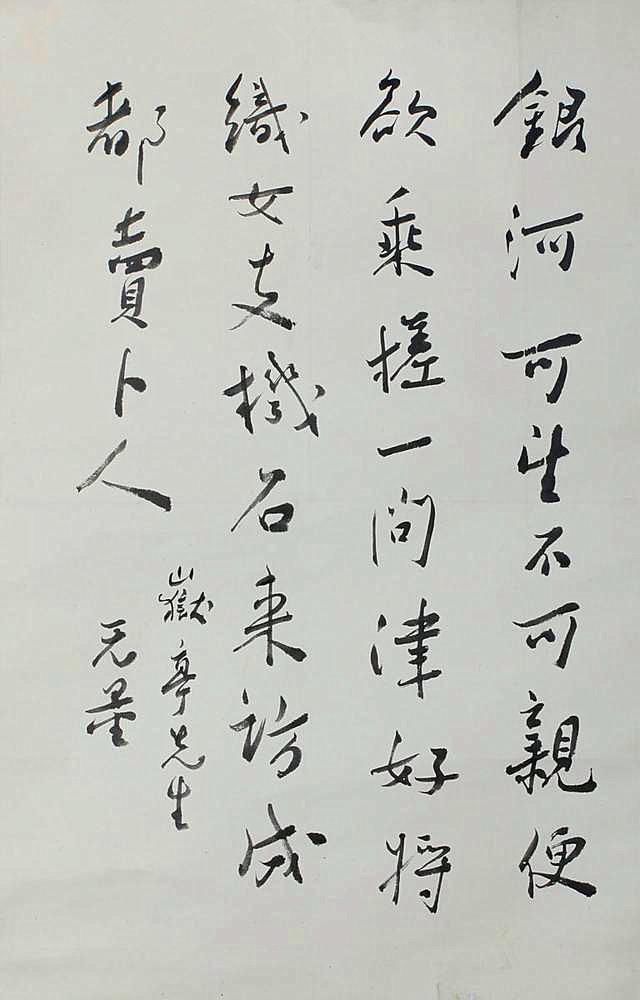 銀河可望不可親便
欲乘槎一問津好將
織女支機石来訪成
都賣卜人
嶽亭先生
无量